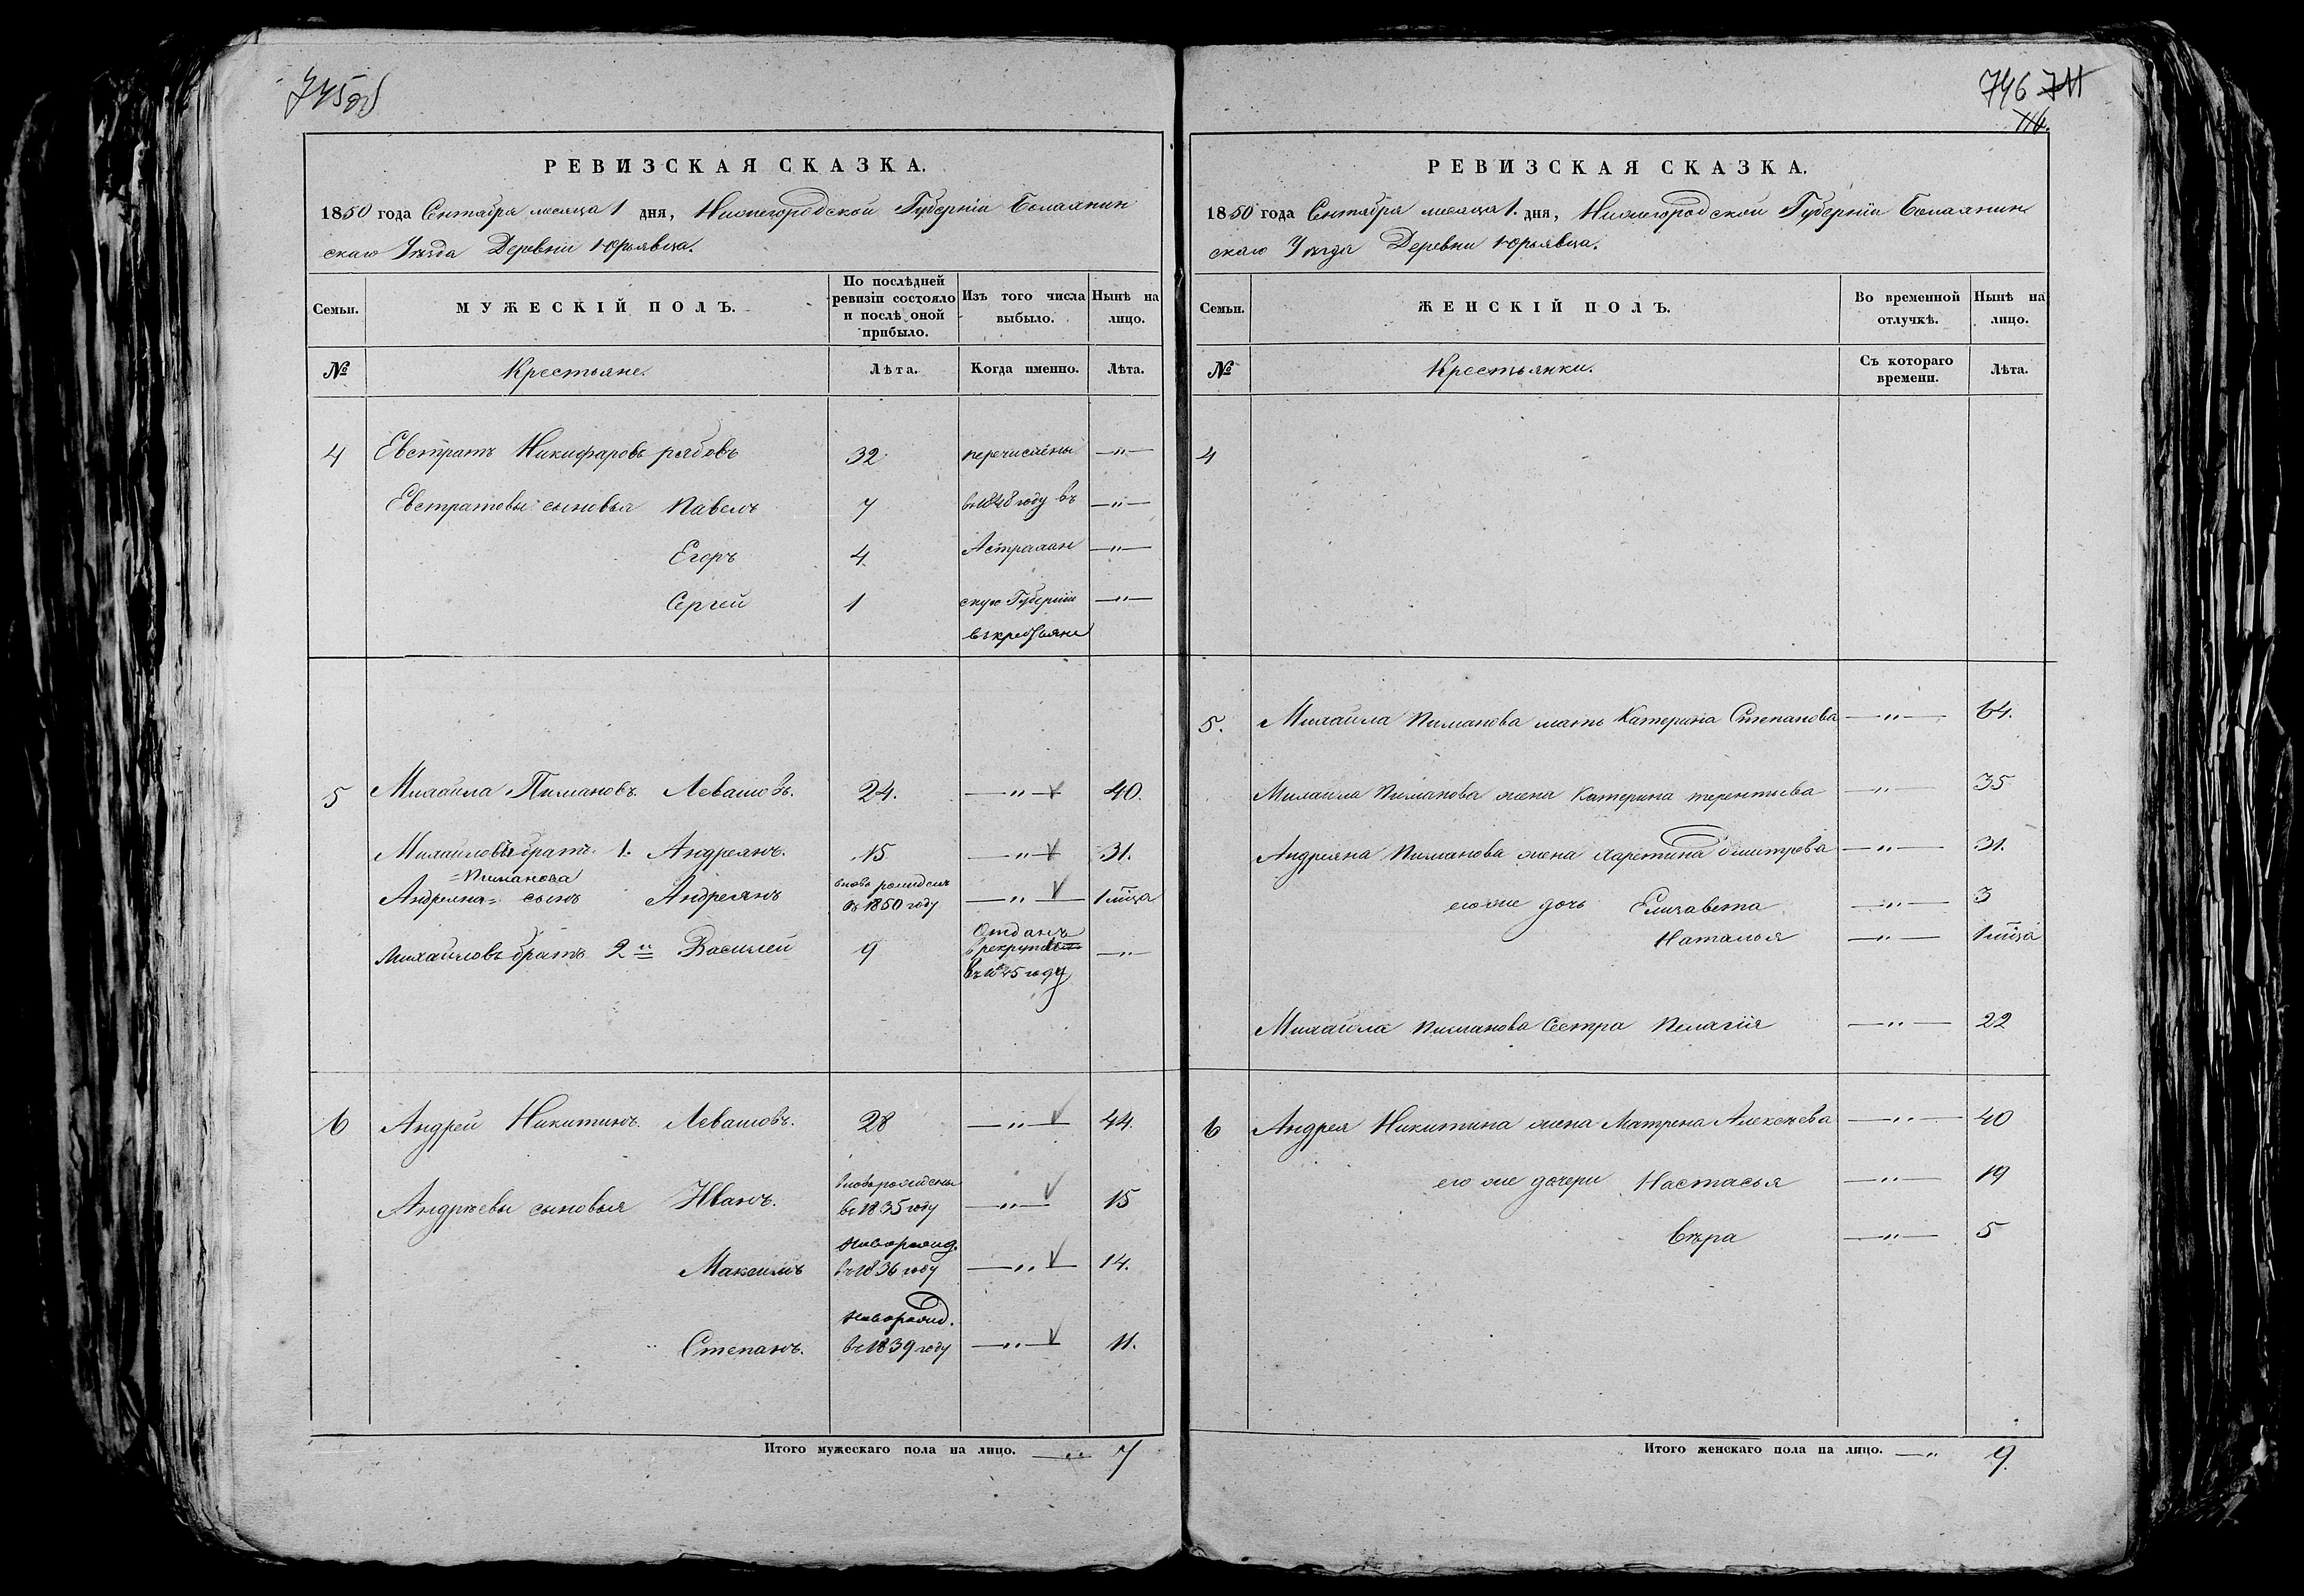 745 об
РЕВИЗСКАЯ СКАЗКА.
1850 года Сентября месяца 1 дня, Нижегородской Губерніи Балахнин
скаго Уѣзда Деревни Юрьявца.
Семьи.
МУЖЕСКІЙ ПОЛЪ.
По послѣдней ревизіи состояло и послѣ оной прибыло.
Изъ того числа выбыло.
Нынѣ на лицо.
№
Крестьяне.
Лѣта.
Когда именно.
Лѣта.
4 Евстратъ Никифаровъ рябовъ 32 перечислены —„—
Евстратовы сыновья Павелъ 7 въ 1848 году въ —„—
Егоръ 4 Астрахан —„—
Сергей 1 скую Губернію —„—
въ крестьяне
5 Михайла Пимановъ Левашовъ. 24. —„— 40.
Михайловы братъ 1. Андреянъ. 15 —„— 31.
Пиманова
Андреяна= сынъ Андреянъ вновь рожденъ въ 1850 году —„— 1 мца
Михайловъ братъ 2й Василей 9 Отданъ в рекруты въ 1845 году —„—
6 Андрей Никитинъ. Левашовъ. 28 —„— 44.
Андрѣевы сыновья Иванъ. вновьрождены въ 1835 году —„— 15
Максимъ Новорожд. въ 1836 году —„— 14.
Степанъ. Новорожд. въ 1839 году —„— 11.
Итого мужескаго пола на лицо. —„— 7
746 711
116.
РЕВИЗСКАЯ СКАЗКА.
1850 года Сентября месяца 1. дня, Нижегородской Губерніи Балахнин
скаго Уѣзда Деревни Юрьявца.
Семьи.
ЖЕНСКІЙ ПОЛЪ.
Во временной отлучкѣ.
Нынѣ на лицо.
№
Крестьянки.
Съ котораго времени.
Лѣта.
4
5. Михайла Пиманова мать Катерина Степанова —„— 64.
Михайла Пиманова жена Катерина терентьева —„— 35
Андреяна Пиманова жена харетина дмитрева —„— 31.
его же дочь Елизавета —„— 3
Наталья —„— 1 мца
Михайла Пиманова Сестра Пелагія —„— 22
6 Андрея Никитина жена Матрена Алексѣева —„— 40
его же дочери Настасья —„— 19
Вѣра —„— 5
Итого женскаго пола на лицо. —„ 9.